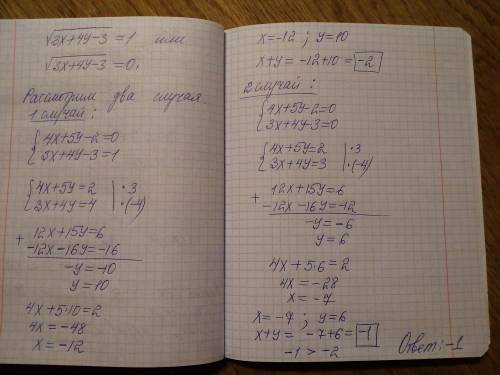 √3x+4y-3 = 1 или
√3x+4y-3 = 0,
Рассмотрим два случая.
1 случай:
{4x+5y-2=0
{3x+4y-3=1
{4x+5y=2 |·3
{3x+4y=4 |·(-4)
+ 12x+15y=6
-12x-16y=-16
-y=-10
y=10
4x+5·10=2
4x=-48
x=-12
x=-12; y=10
x+y = -12+10 = -2
2 случай:
{4x+5y-2=0
{3x+4y-3=0
{4x+5y=2 |·3
{3x+4y=3 |·(-4)
+ 12x+15y=6
-12x-16y=-12
-y=-6
y=6
4x+5·6=2
4x=-28
x=-7
x=-7; y=6
x+y = -7+6= -1
-1 > -2
Ответ: -1